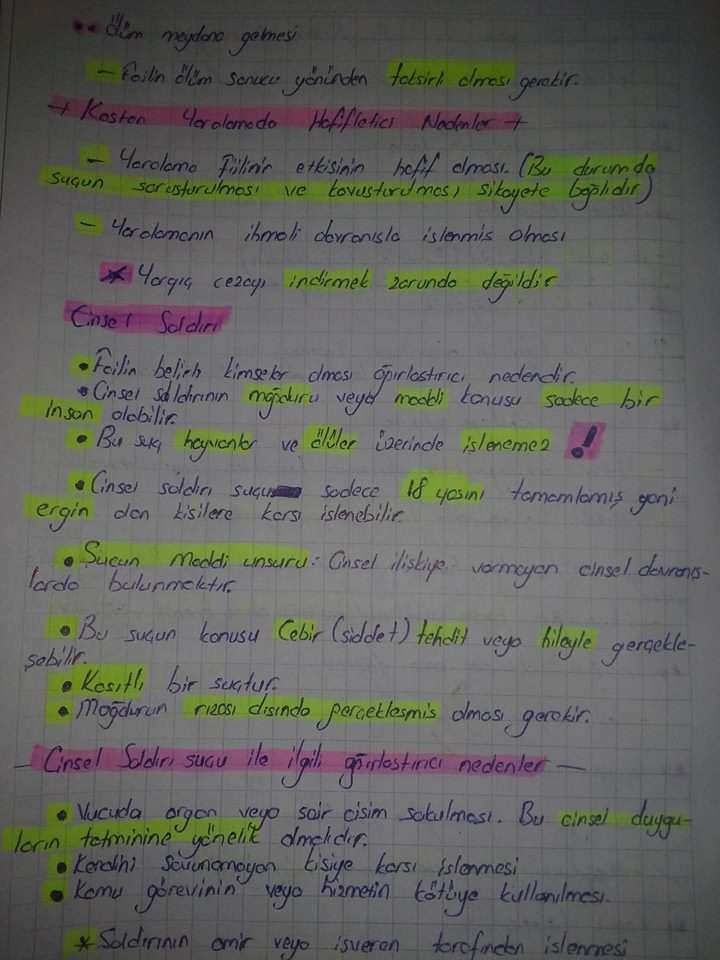 •• Ölüm meydana gelmesi
– Failin ölüm sonucu yönünden taksirli olması gerekir.
→ Kasten Yaralamada Hafifletici Nedenler →
– Yaralama fiilinin etkisinin hafif olması. (Bu durumda
suçun soruşturulması ve kovuşturulması şikayete bağlıdır)
– Yaralamanın ihmali davranışla işlenmiş olması
* Yargıç cezayı indirmek zorunda değildir
Cinsel Saldırı
• Failin belirli kimseler olması ağırlaştırıcı nedendir.
• Cinsel saldırının mağduru veya maddi konusu sadece bir
insan olabilir.
• Bu suç hayvanlar ve ölüler üzerinde işlenemez !
• Cinsel saldırı suçu sadece 18 yaşını tamamlamış yani
ergin olan kişilere karşı işlenebilir.
• Suçun Maddi unsuru: Cinsel ilişkiye varmayan cinsel davranış-
larda bulunmaktır.
• Bu suçun konusu Cebir (şiddet) tehdit veya hileyle gerçekle-
şebilir.
• Kasıtlı bir suçtur.
• Mağdurun rızası dışında gerçekleşmiş olması gerekir.
– Cinsel Saldırı suçu ile ilgili ağırlaştırıcı nedenler –
• Vucuda organ veya sair cisim sokulması. Bu cinsel duygu-
ların tatminine yönelik olmalıdır.
• Kendini savunamayan kişiye karşı işlenmesi
• Kamu görevinin veya hizmetin kötüye kullanılması.
* Saldırının amir veya işveren tarafından işlenmesi